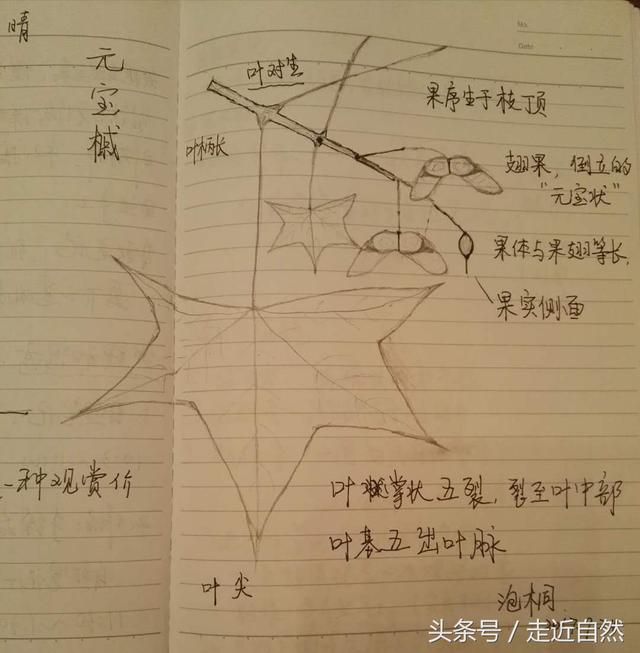 晴
No.
Date
元宝槭
叶对生
果序生于枝顶
叶柄长
翅果，倒立的
“元宝状”
果体与果翅等长.
果实侧面
一种观赏价
叶 掌状五裂，裂至叶中部
叶基五出叶脉
叶尖
泡桐
头条号 / 走近自然